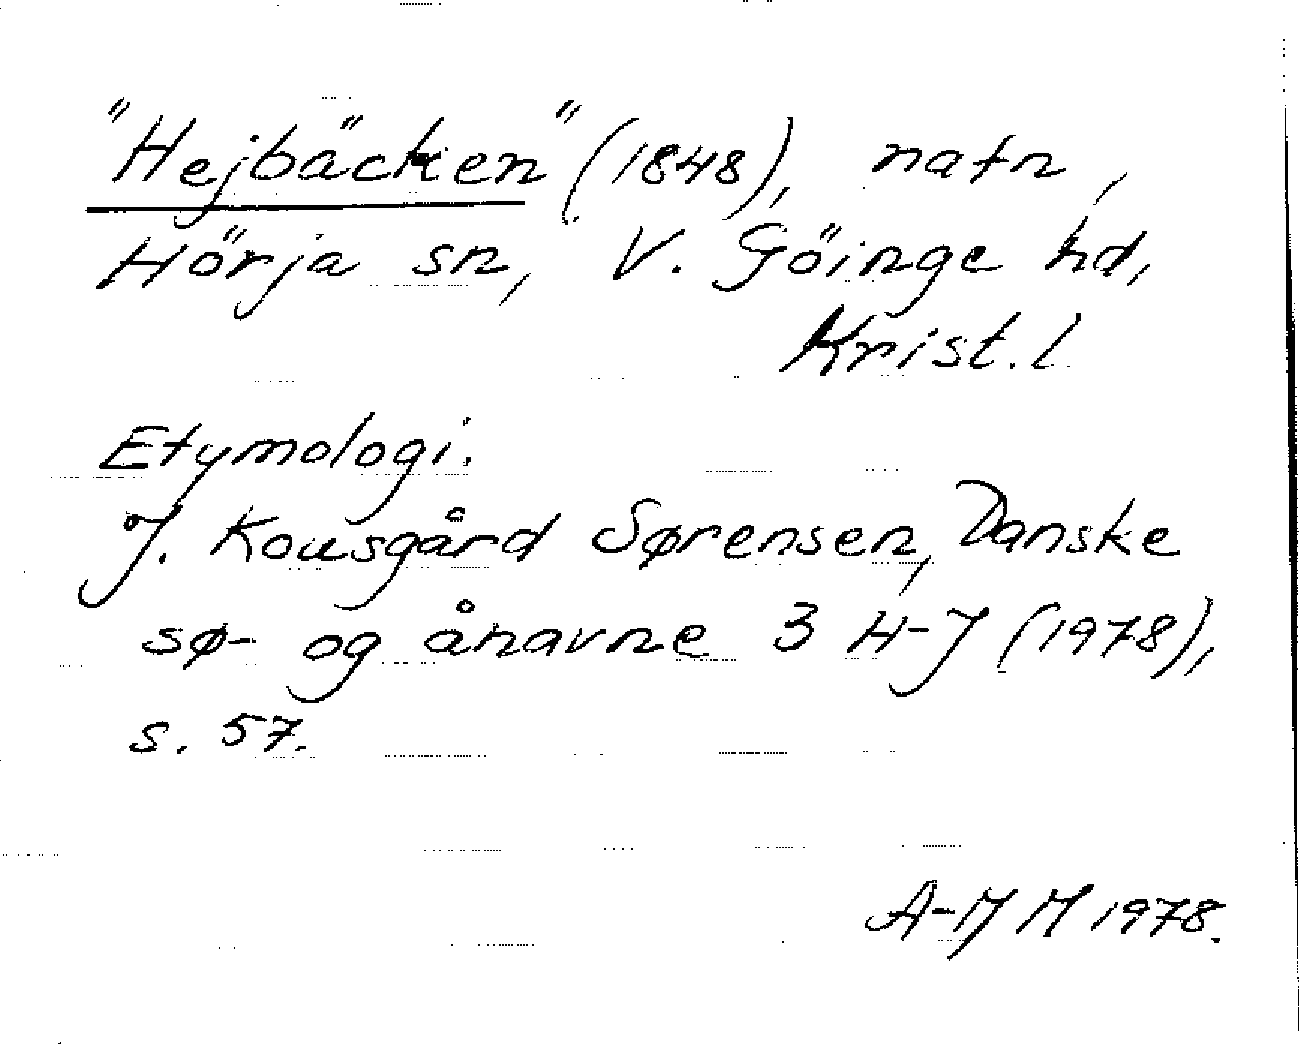 "Hejbäcken" (1848), natn,
Hörja sn, V. Göinge hd,
Krist. l
Etymologi:
J. Kousgård Sørensen, Danske
sø- og ånavne 3 H-J (1978),
s. 57.
A-M M 1978.